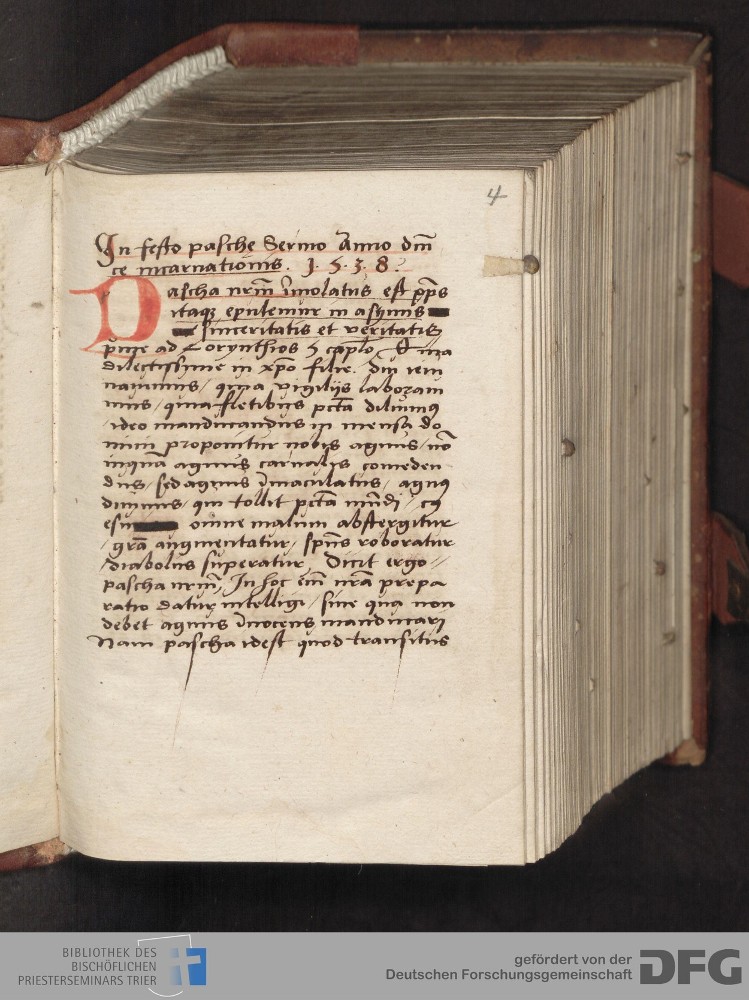 4
In festo pasche Sermo Anno dm̄
ce incarnationis . 1 . 5 . 3 . 8 .
Pascha nr̄m īmolatus est xp̄s
itaq epulemur in asymis
sinceritatis et veritatis
prime ad Corynthios 5 cap̄lo
dilectissyme in xp̄o filie . Qui ieiu
nauimus / quia vigilijs laboraui
mus / quia fletibus pctā diluimꝰ
/ ideo manducandus in mensa do
mini proponitur nobis agnus / nō
inquā agnus carnalis comeden
dus / sed agnus īmaculatus / agnꝰ
diuinus / qui tollit pctā mūdi / cꝰ
esu omne malum abstergitur
/ grā augmentatur / spūs roboratur
/ diabolus superatur / Dicit ergo //
pascha nr̄m / In hoc em̄ nrā prepa
ratio datur intelligi / sine qua non
debet agnus īnocens manducari
Nam pascha idest quod transitus
BIBLIOTHEK DES
BISCHÖFLICHEN
PRIESTERSEMINARS TRIER
gefördert von der
Deutschen Forschungsgemeinschaft
DFG